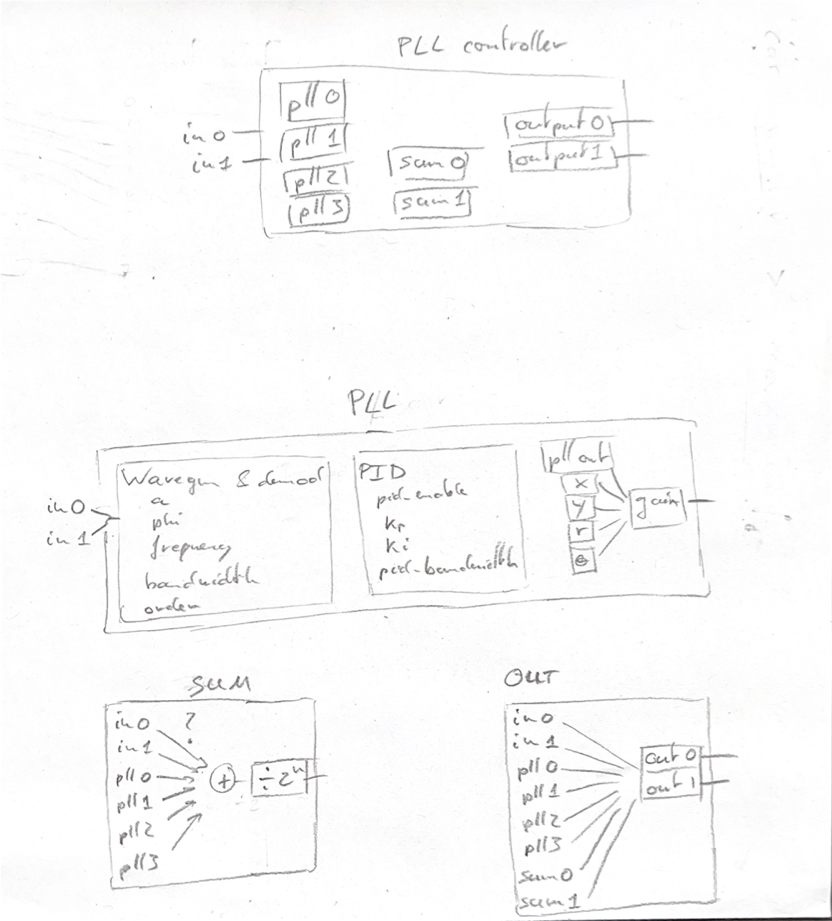 PLL controller
pll 0
pll 1
pll 2
pll 3
in 0
in 1
sum 0
sum 1
output 0
output 1
PLL
in 0
in 1
Wavegen & demod
a
phi
frequency
bandwidth
order
PID
pid-enable
kp
ki
pid-bandwidth
pll out
x
y
r
θ
gain
SUM
in 0 ?
in 1
pll 0
pll 1
pll 2
pll 3
+
÷ 2ⁿ
OUT
in 0
in 1
pll 0
pll 1
pll 2
pll 3
sum 0
sum 1
out 0
out 1